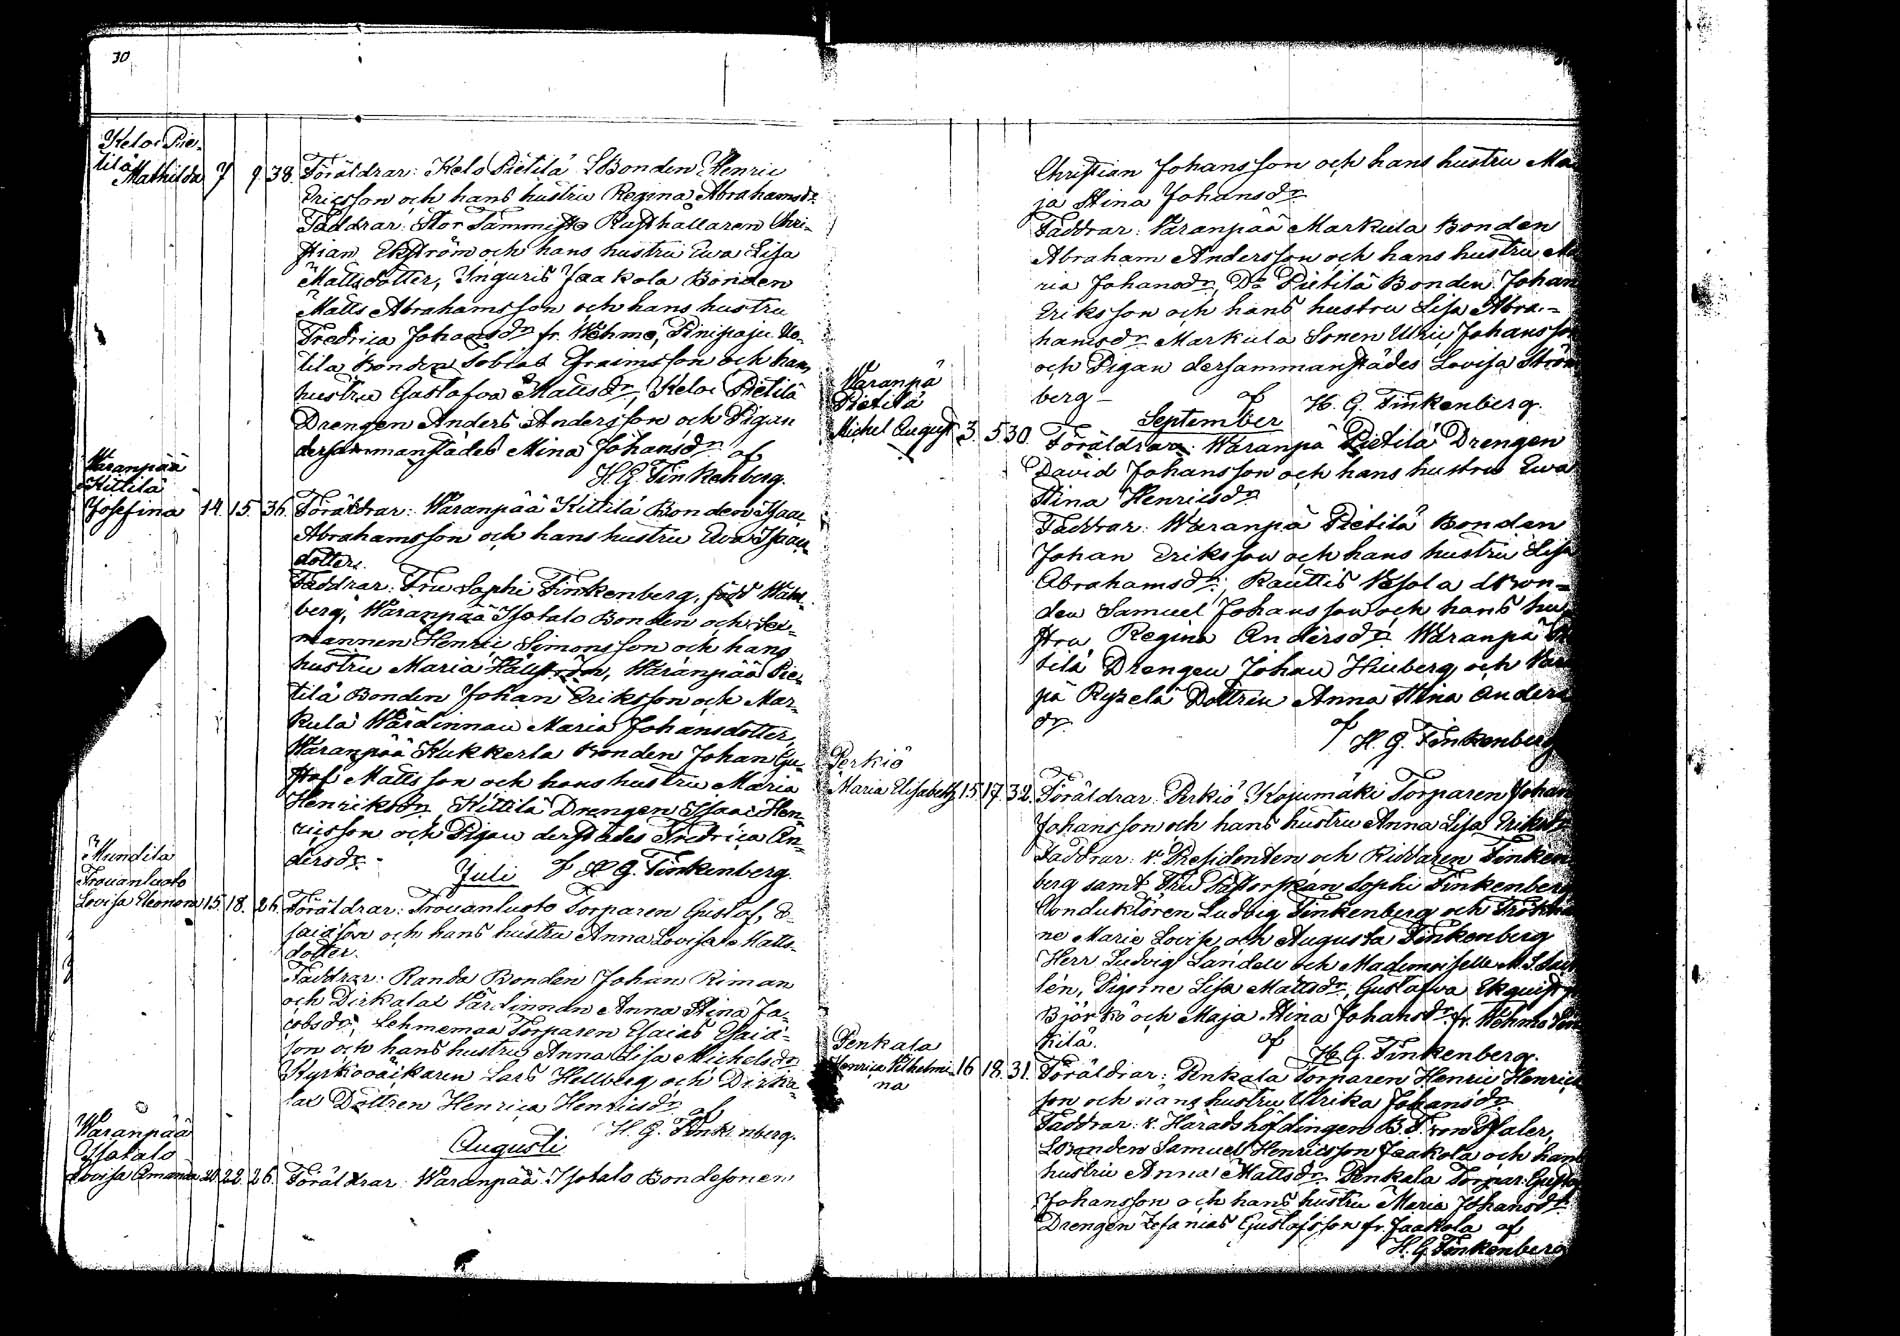 30
Keloi Pie-
tilä
Mathilda 7 9 38. Föräldrar: Kelo Pietilä LBonden Henric
Ericsson och hans hustru Regina Abrahamsdr.
Faddrar: Stor Tammisto Rusthållaren Chri-
stian Ekström och hans hustru Ewa Lisa
Mattsdotter, Inguris Jaakola Bonden
Matts Abrahamsson och hans hustru
Fredrica Johansdr fr. Wehmo, Pinipaju Uo-
tila Bonden Tobias Efraimsson och hans
hustru Gustafva Mattsdr, Keloi Pietilä
Drengen Anders Andersson och Pigan
dersammanstädes Mina Johansdr af
H.G. Finkenberg.
Waranpää
Kittilä
Josefina 14. 15. 36. Föräldrar: Waranpää Kittilä Bonden Isaac
Abrahamsson och hans hustru Eva Isaacs-
dotter.
Faddrar: Fru Sophi Finkenberg, född Wahl-
berg, Waranpää Isotalo Bonden och Sex-
mannen Henric Simonsson och hans
hustru Maria Hällström, Waranpää Pie-
tilä Bonden Johan Eriksson och Mar-
kula Wärdinnan Maria Johansdotter,
Waranpää Kukkerla Bonden Johan Gu-
staf Mattsson och hans hustru Maria
Henriksdr, Kittilä Drengen Isaac Hen-
ricsson och Pigan derstädes Fredrica An-
dersdr. Juli af H G. Finkenberg.
Mundila
Trouanluoto
Lovisa Eleonora 15. 18. 26. Föräldrar: Trouanluoto Torparen Gustaf E-
saiasson och hans hustru Anna Lovisa Matts-
dotter.
Faddrar: Randa Bonden Johan Riman
och Dirkalax Värdinnan Anna Stina Ja-
cobsdr, Lehmemaa Torparen Esaias Esaia-
son och hans hustru Anna Lisa Michelsdr
Kyrkoväktaren Lars Hellberg och Dirka-
lax Dottren Henrica Henricsdr af
H. G. Finkenberg.
Augusti
Waranpää
Isotalo
Lovisa Amanda 20. 22. 26. Föräldrar: Waranpää Isotalo Bondesonen
Christian Johansson och hans hustru Ma
ja Stina Johansdr
Faddrar: Varanpää Markula Bonden
Abraham Andersson och hans hustru Ma
ria Johansdr, Do Pietilä Bonden Johan
Eriksson och hans hustru Lisa Abra-
hamsdr Markula Sonen Ulric Johansson
och Pigan dersammanstädes Lovisa Ström
berg- af H. G. Finkenberg.
September
Waranpä
Pietilä
Michel August 3. 5 30. Föräldrar: Waranpä Pietilä Drengen
David Johansson och hans hustru Ewa
Stina Henricsdr
Faddrar: Waranpä Pietilä Bonden
Johan Eriksson och hans hustru Lisa
Abrahamsdr, Rautis Yesola d Bon-
den Samuel Johansson och hans hu
stru Regina Andersdr. Waranpä
tilä Drengen Johan Hinberg och Vara
pä Ryzelä Dottren Anna Stina Anders
dr.
af H. G. Finkenberg
Perkiö
Maria Elisabeth 15 17. 32. Föräldrar: Perkiö Kojumäki Torparen Johan
Johansson och hans hustru Anna Lisa Eriksdr
Faddrar: v. Presidenten och Riddaren Finken-
berg samt Fru Pastorskan Sophi Finkenberg
Conduktören Ludvig Finkenberg och Frökna
ne Marie Lovise och Augusta Finkenberg
Herr Ludvig Landell och Mademoiselle M. S. San
lén, Pigorne Lisa Mattsdr, Gustafva Ekquist fr
Björkö och Maja Stina Johansdr fr. Wehmo
kilä. af H. G. Finkenberg.
Penkala
Henrica Vilhelmi-
na 16 18. 31. Föräldrar: Penkala Torparen Henric Henrics
son och hans hustru Ulrika Johansdr
Faddrar: v. Häradshöfdingen B. F. von Psaler,
LBonden Samuel Henricsson Jaakola och hans
hustru Anna Mattsdr Penkala Torpar: Gustaf
Johansson och hans hustru Maria Johansdr
Drengen Zefanias Gustafsson fr. Jaakola af
H. G. Finkenberg